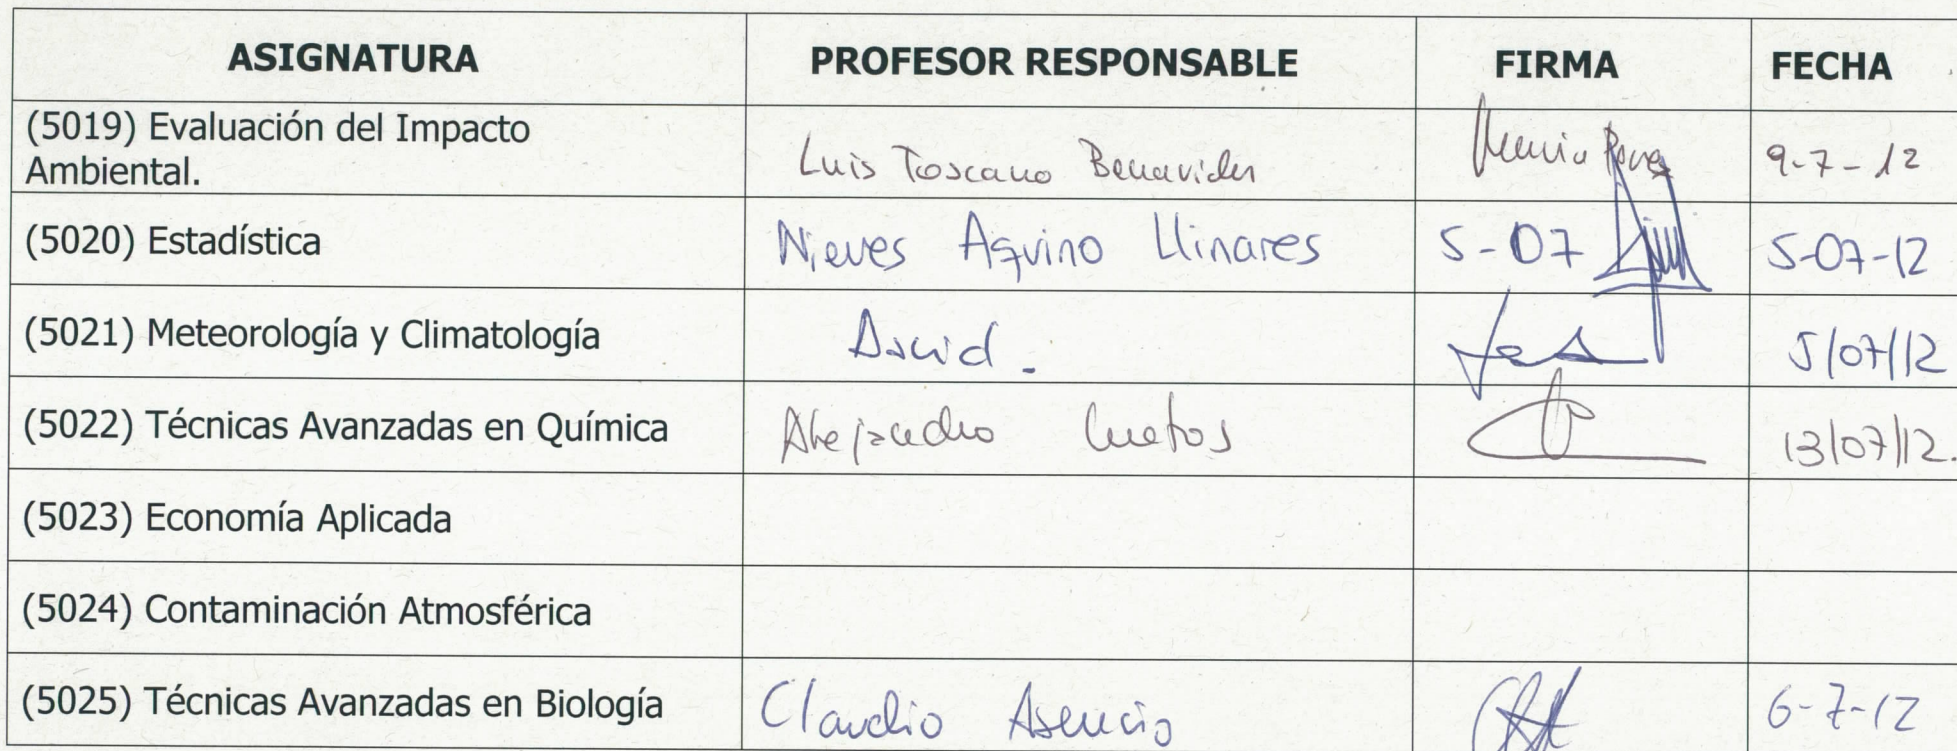 ASIGNATURA PROFESOR RESPONSABLE FIRMA FECHA
(5019) Evaluación del Impacto
Ambiental. Luis Toscano Benavides 9-7-12
(5020) Estadística Nieves Aquino Llinares 5-07 5-07-12
(5021) Meteorología y Climatología David. 5/07/12
(5022) Técnicas Avanzadas en Química Alejandro Cuetos 13/07/12.
(5023) Economía Aplicada
(5024) Contaminación Atmosférica
(5025) Técnicas Avanzadas en Biología Claudio Asencio 6-7-12